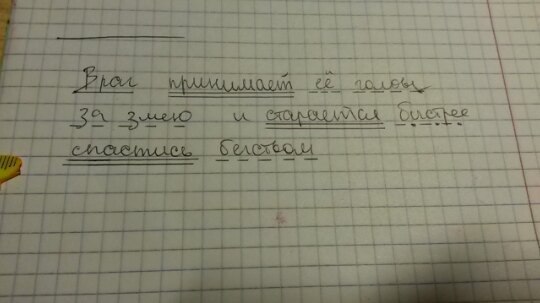 Враг принимает её голову
за змею и старается быстрее
спастись бегством